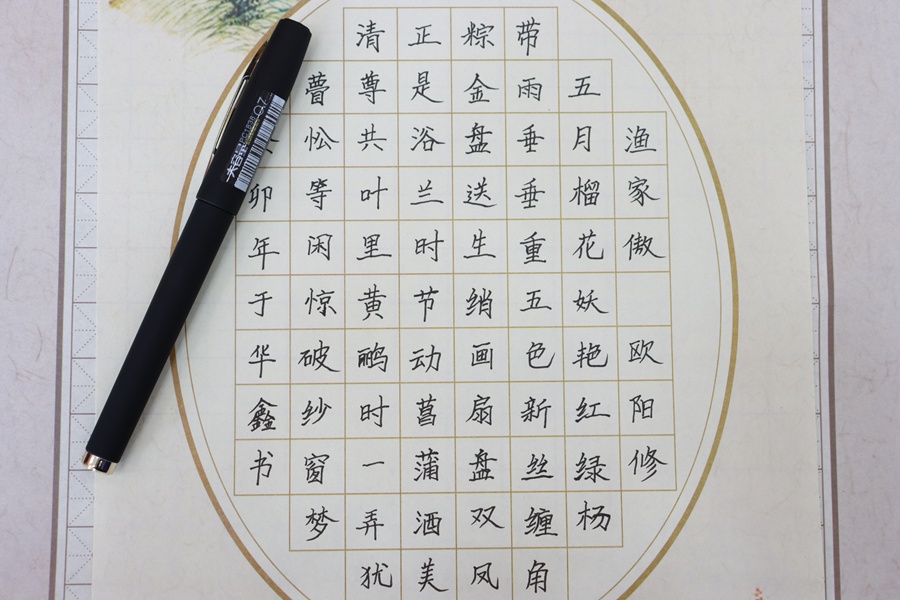 渔家傲 欧阳修
五月榴花妖艳红绿杨
带雨垂垂重五色新丝缠角
粽金盘送生绡画扇盘双凤
正是浴兰时节动菖蒲酒美
清尊共叶里黄鹂时一弄犹
瞢忪等闲惊破纱窗梦
卯年于华鑫书
大容量